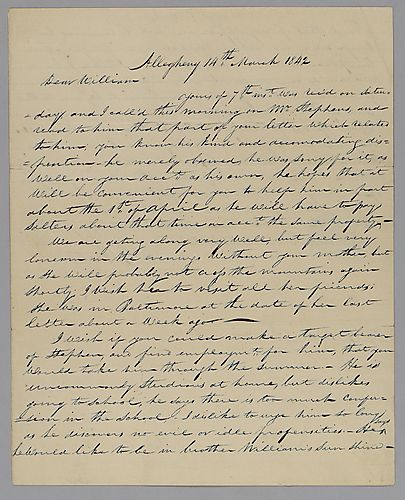 Allegheny 14th March 1842
Dear William
yours of 7th inst. was rec'd on satur
=day and I call'd this morning on Mr Stephens, and
read to him that part of your letter which relates
to him, you know his kind and accomodating dis=
=position - he merely observed he was sorry for it, as
well on your acct as his own, he hopes that it
will be convenient for you to help him in part
about the 1st of April as he will have to pay
Sellers about that time on acct of the same property -
We are getting along very well, but feel very
lonesom in the evenings without your mother, but
as she will probably not the mountains again
shortly, I wish her to visit all her friends;
She was in Baltimore at the date of her last
letter about a week ago
I wish if you could make a target bearer
of Stephen, and find employmt for him, that you
would take him through the summer - He is
uncommonly studious at home, but dislikes
going to school, he says there is too much confu=
=sion in the school - I dislike to urge him so long
as he discovers no evil or idle propensities - He says
he would like to be in brother William's sun shine -